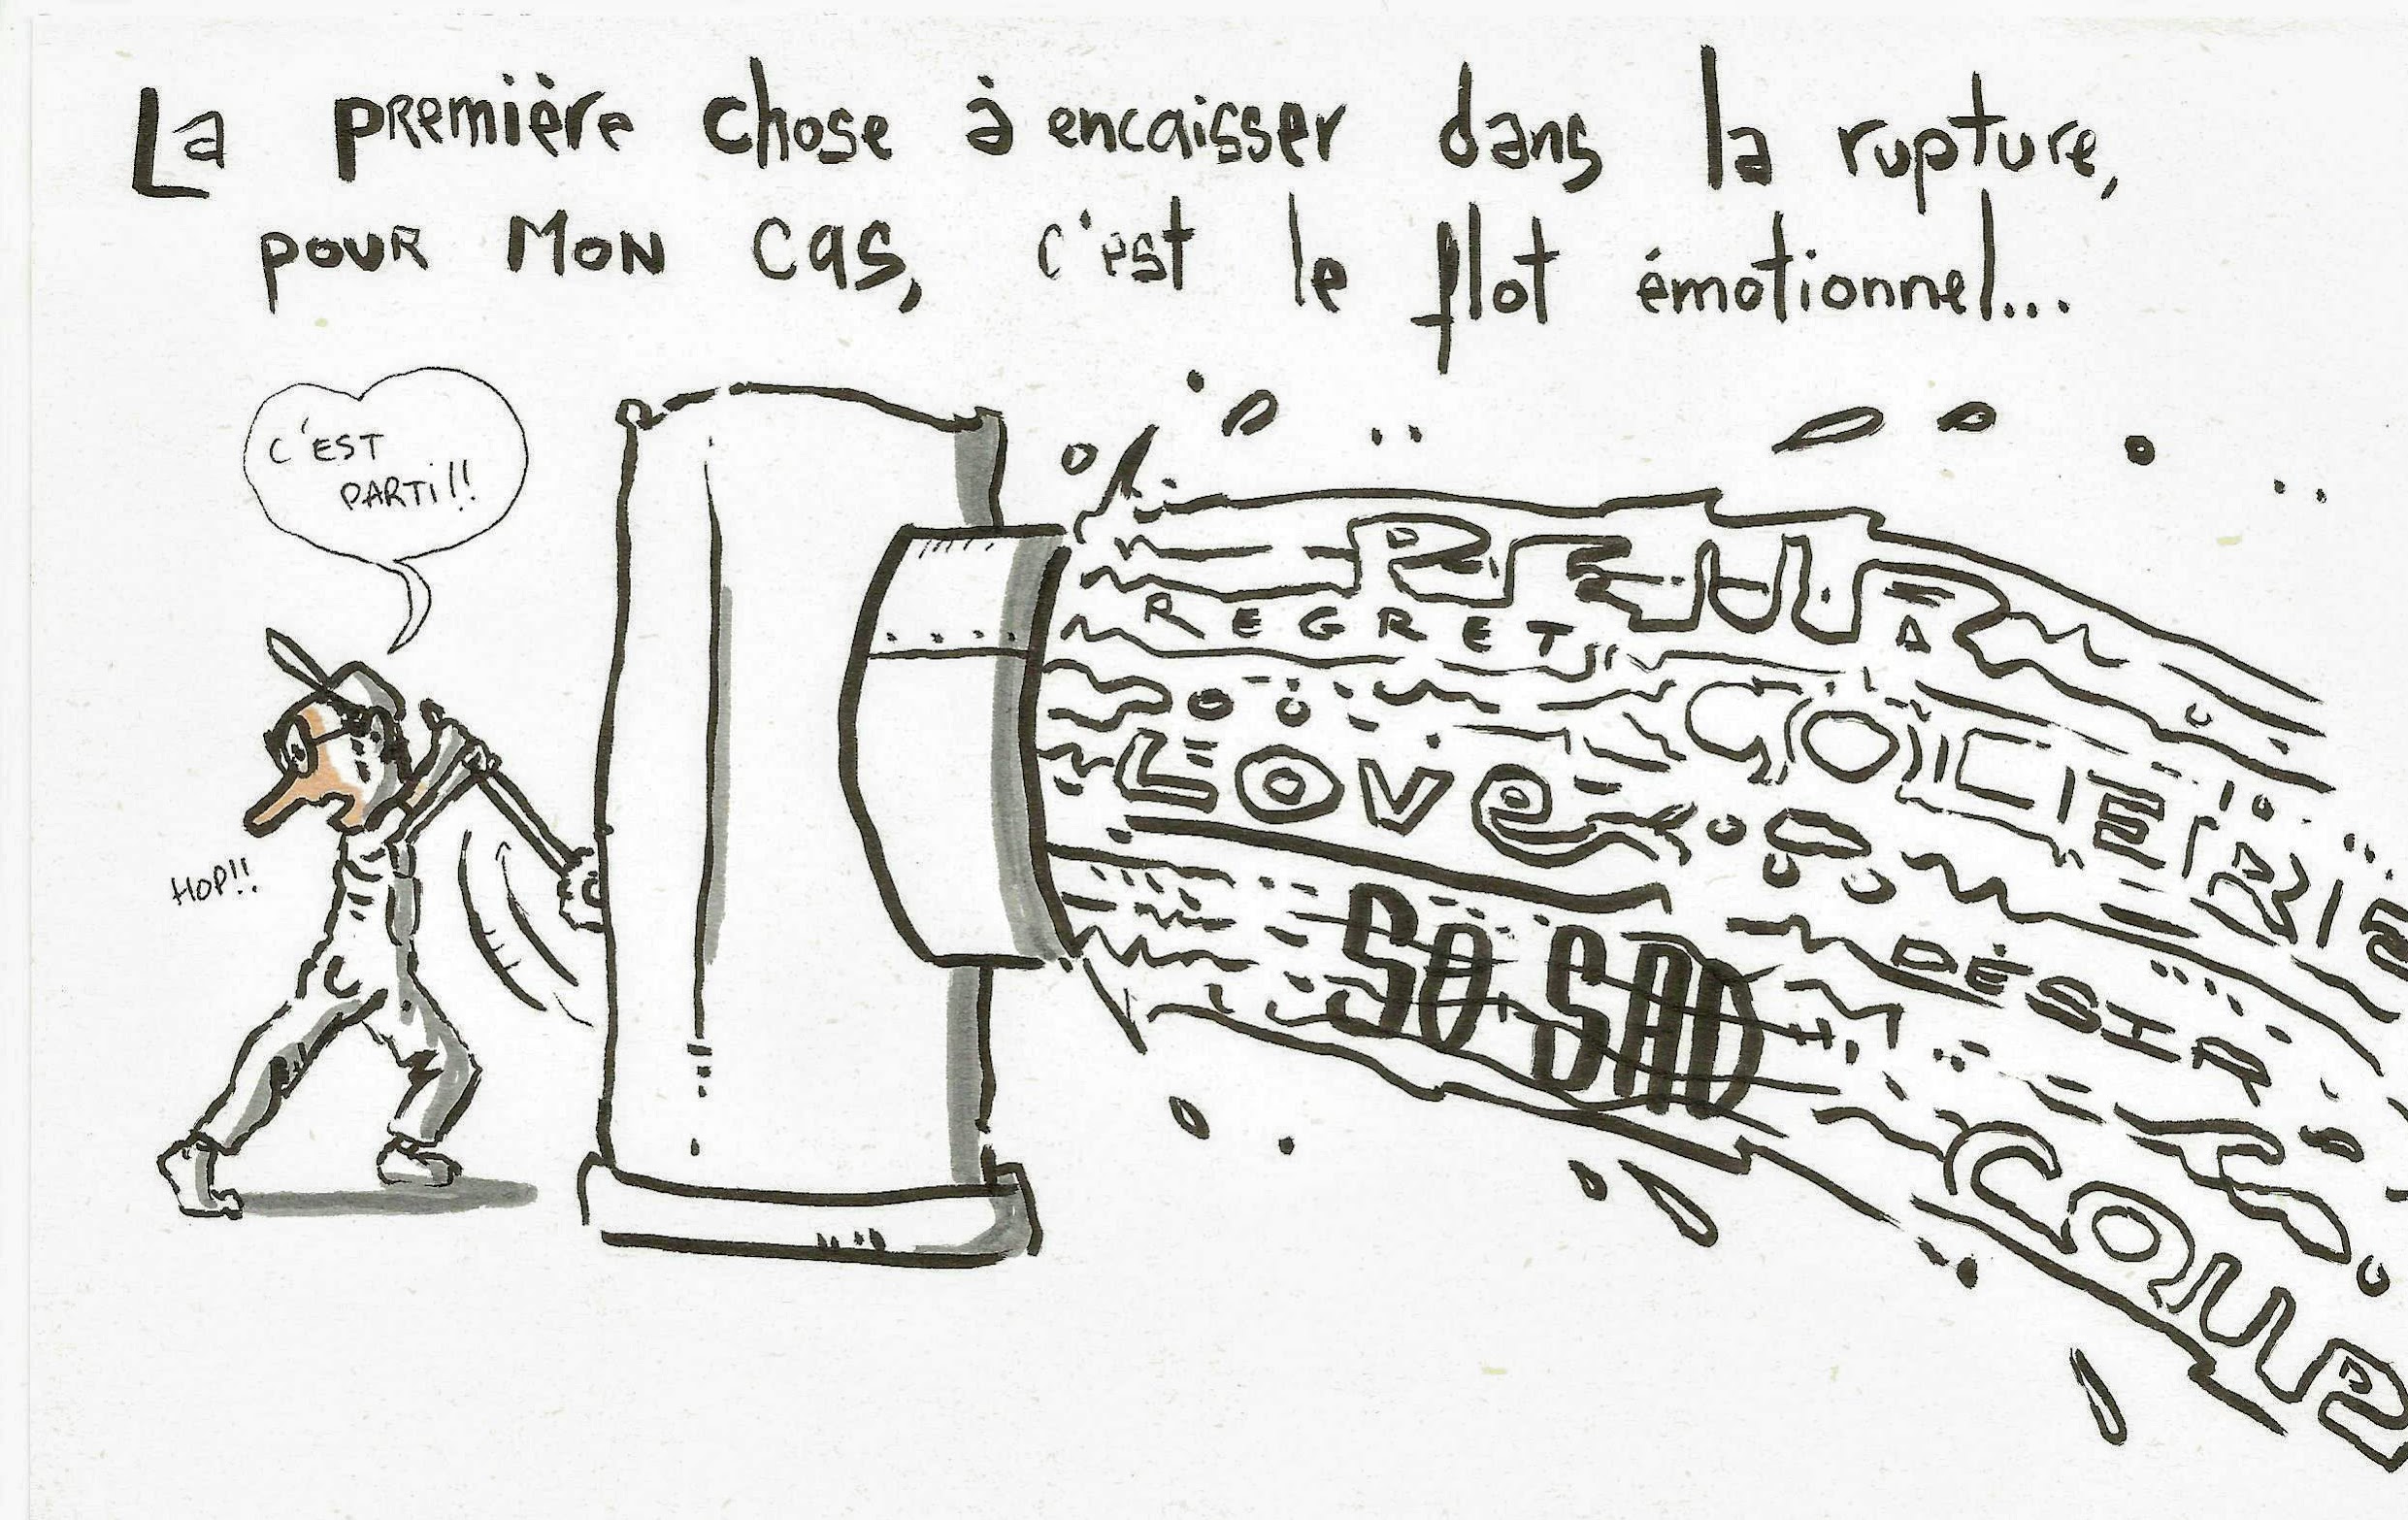 La première chose à encaisser dans la rupture,
pour mon cas, c'est le flot émotionnel...
C'EST
PARTI!!
HOP!!
PEUR
REGRET
COLERE
LOVE
DÉSIR
SO SAD
COUR